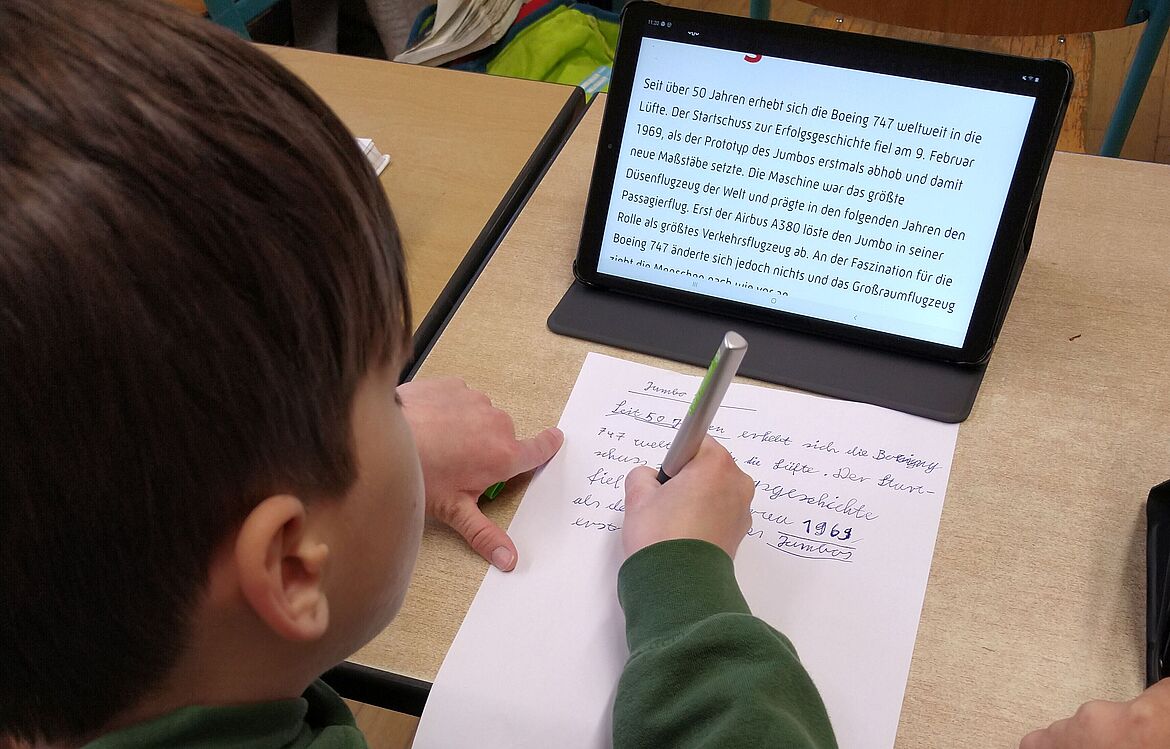 11:20
Seit über 50 Jahren erhebt sich die Boeing 747 weltweit in die
Lüfte. Der Startschuss zur Erfolgsgeschichte fiel am 9. Februar
1969, als der Prototyp des Jumbos erstmals abhob und damit
neue Maßstäbe setzte. Die Maschine war das größte
Düsenflugzeug der Welt und prägte in den folgenden Jahren den
Passagierflug. Erst der Airbus A380 löste den Jumbo in seiner
Rolle als größtes Verkehrsflugzeug ab. An der Faszination für die
Boeing 747 änderte sich jedoch nichts und das Großraumflugzeug
zieht die Menschen nach wie vor an
Jumbo
Seit 50 erhebt sich die
747 die Lüfte. Der Start-
schuss gsgeschichte
fiel 1969
als Jumbos
erst